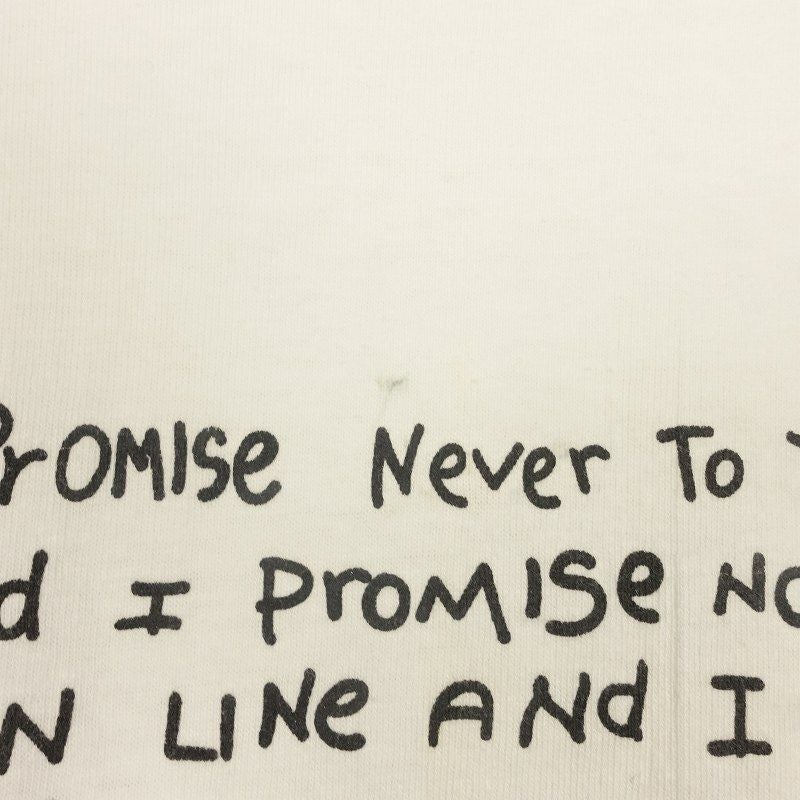 PrOMISe Never To
d I PrOMISe NO
N LINe ANd I